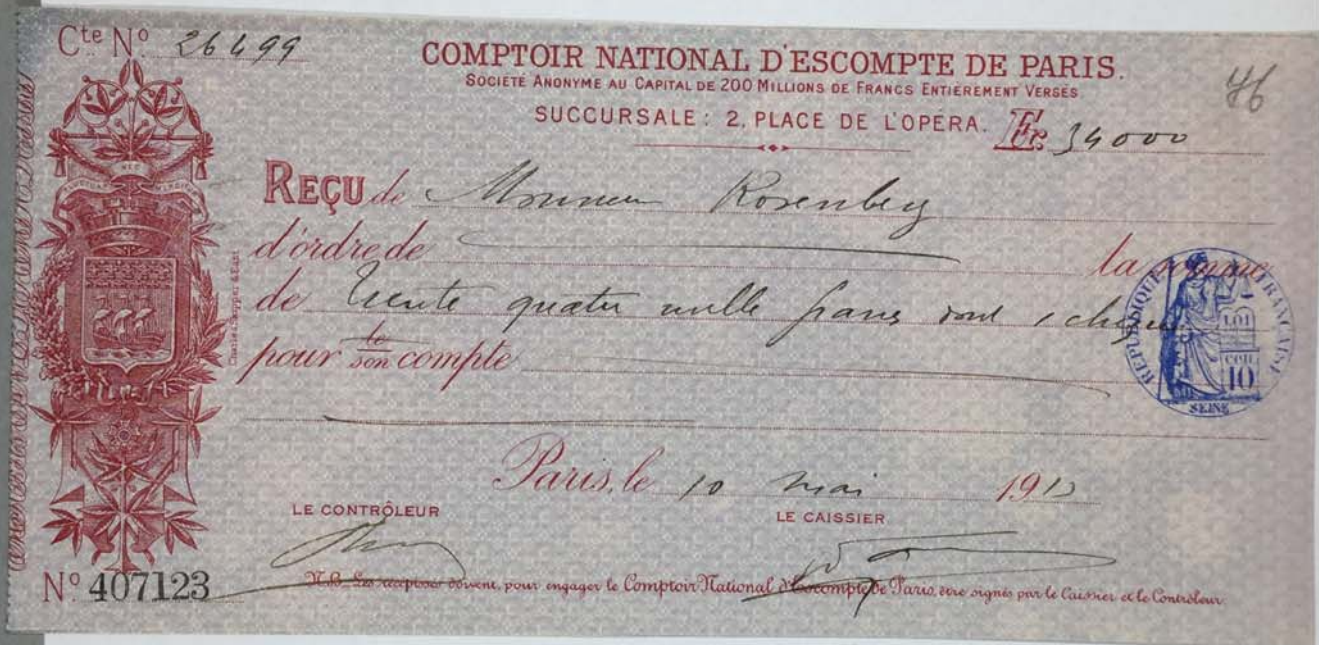 Cte No 26499
COMPTOIR NATIONAL D'ESCOMPTE DE PARIS.
SOCIÉTÉ ANONYME AU CAPITAL DE 200 MILLIONS DE FRANCS ENTIÈREMENT VERSÉS
76
SUCCURSALE: 2, PLACE DE L'OPÉRA. Fr. 34000
REÇU de Monsieur Rosenberg
d'ordre de la somme
de trente quatre mille francs dont 1 chèque
pour son compte
le
RÉPUBLIQUE FRANÇAISE
LOI
CEN
10
SEINE
Paris, le 10 mai 191
LE CONTRÔLEUR LE CAISSIER
No 407123 N.B. Les récépissés doivent, pour engager le Comptoir National d'Escompte de Paris, être signés par le Caissier et le Contrôleur.